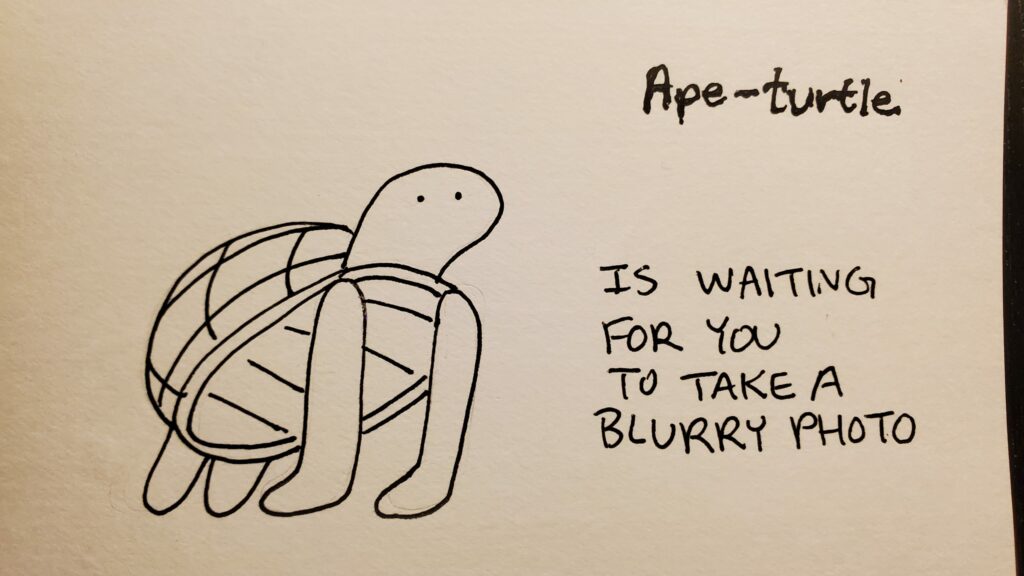 Ape-turtle
IS WAITING
FOR YOU
TO TAKE A
BLURRY PHOTO